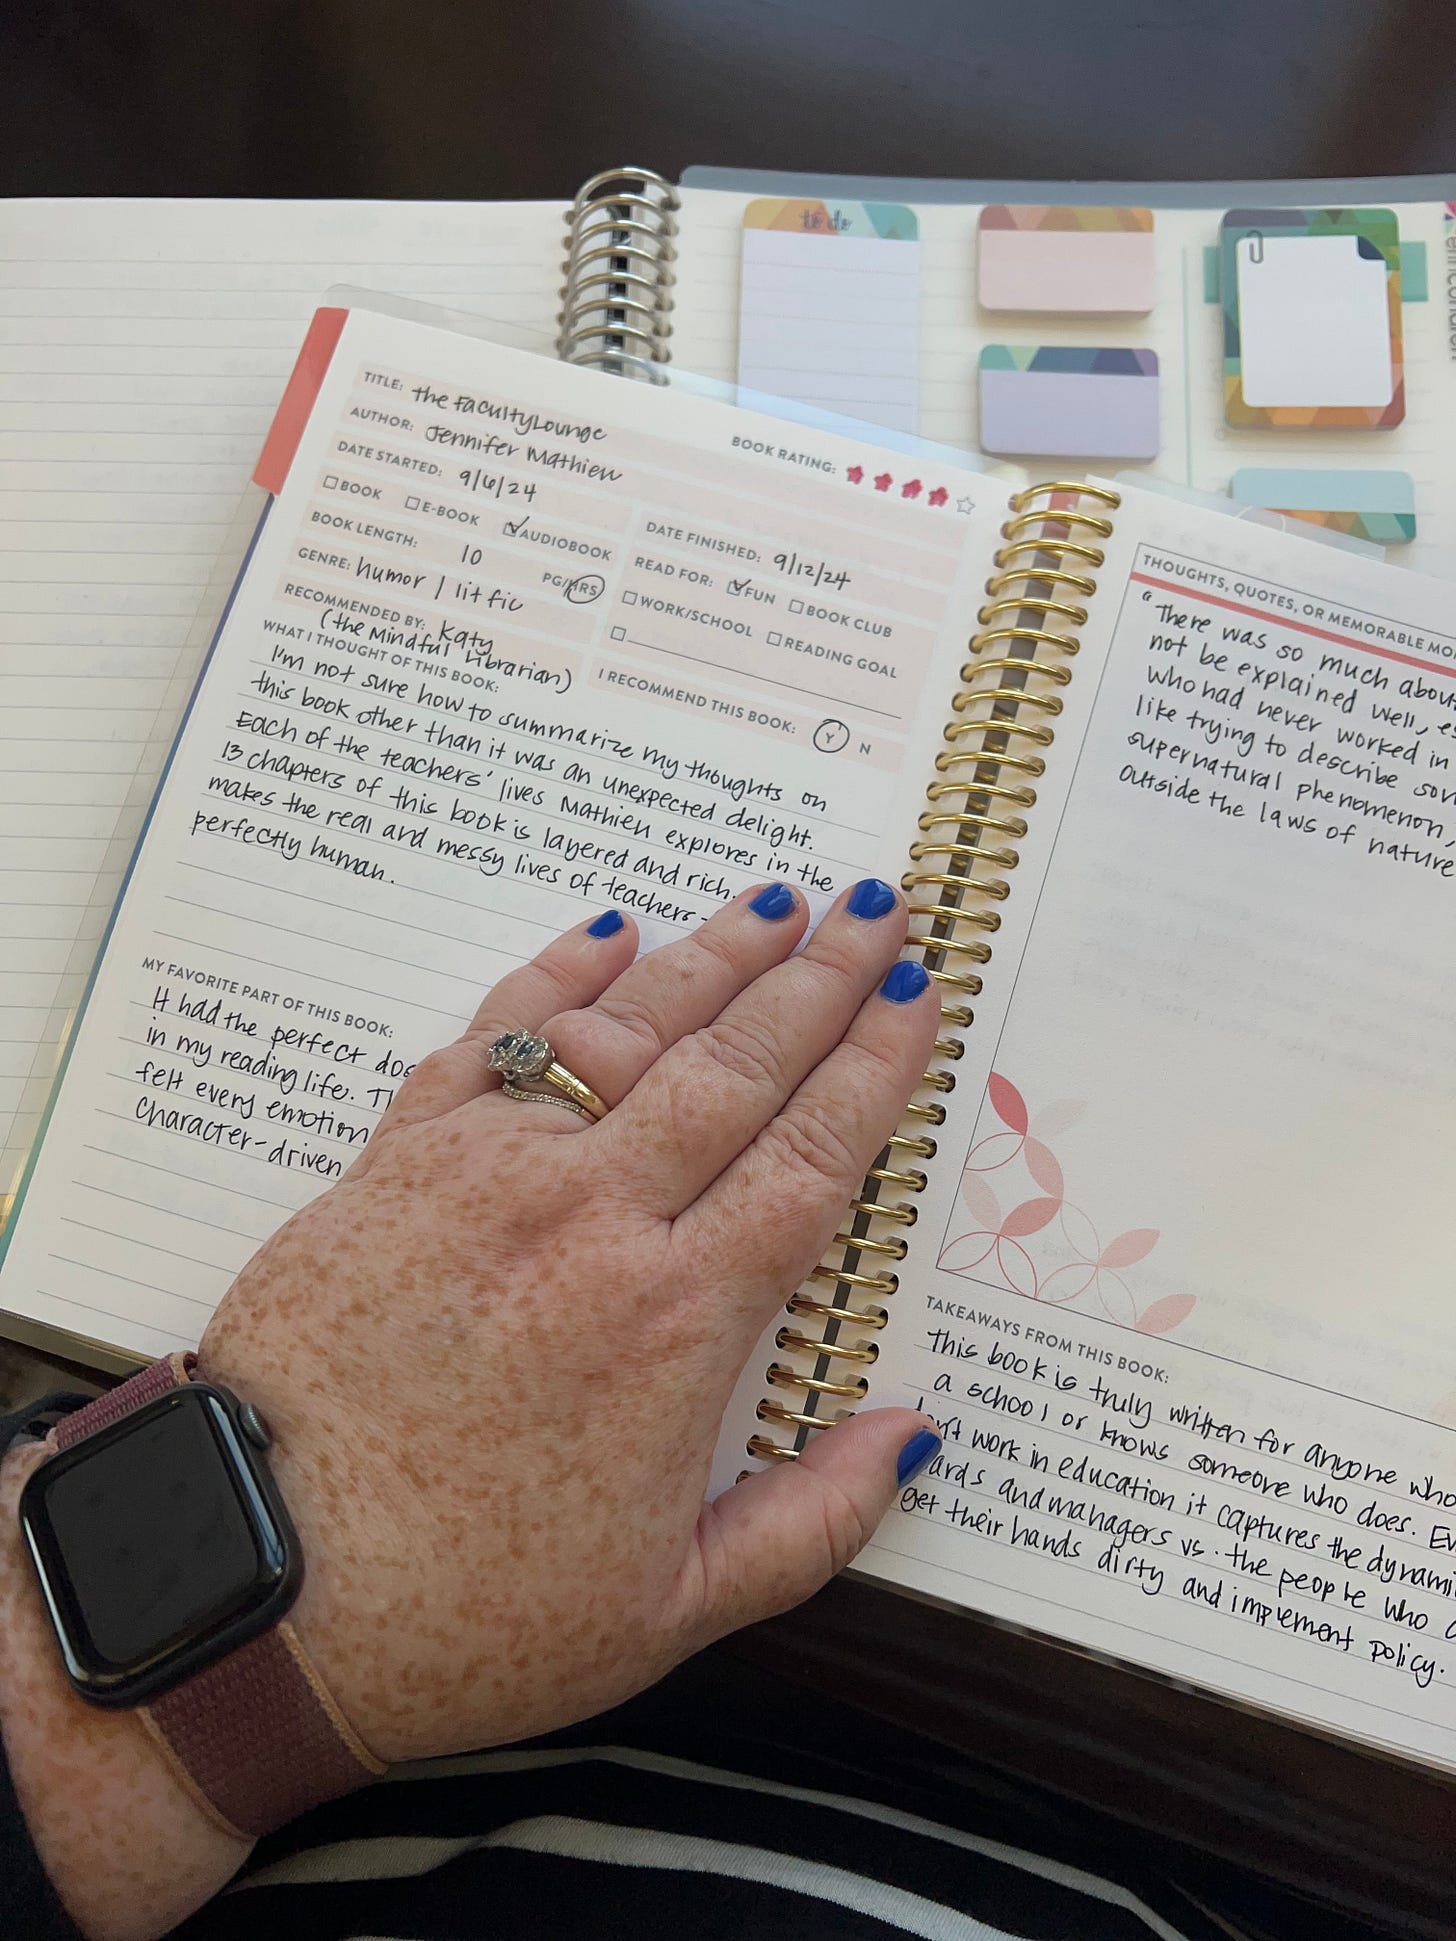 to do
TITLE: the Faculty Lounge
AUTHOR: Jennifer Mathieu
BOOK RATING:
DATE STARTED: 9/6/24
DATE FINISHED: 9/12/24
BOOK E-BOOK AUDIOBOOK
READ FOR: FUN BOOK CLUB
BOOK LENGTH: 10 PG/HRS
WORK/SCHOOL READING GOAL
GENRE: humor / lit fic
RECOMMENDED BY: Katy
(the Mindful Librarian)
I RECOMMEND THIS BOOK: Y N
WHAT I THOUGHT OF THIS BOOK:
I'm not sure how to summarize my thoughts on
this book other than it was an unexpected delight.
Each of the teachers' lives Mathieu explores in the
13 chapters of this book is layered and rich.
makes the real and messy lives of teachers -
perfectly human.
MY FAVORITE PART OF THIS BOOK:
It had the perfect dos
in my reading life. Th
felt every emotion
character-driven
THOUGHTS, QUOTES, OR MEMORABLE MO
"There was so much about
not be explained well, es
who had never worked in
like trying to describe som
supernatural phenomenon,
outside the laws of nature
TAKEAWAYS FROM THIS BOOK:
This book is truly written for anyone who
a school or knows someone who does. Ev
work in education it captures the dynami
ards and managers vs. the people who
get their hands dirty and implement policy.